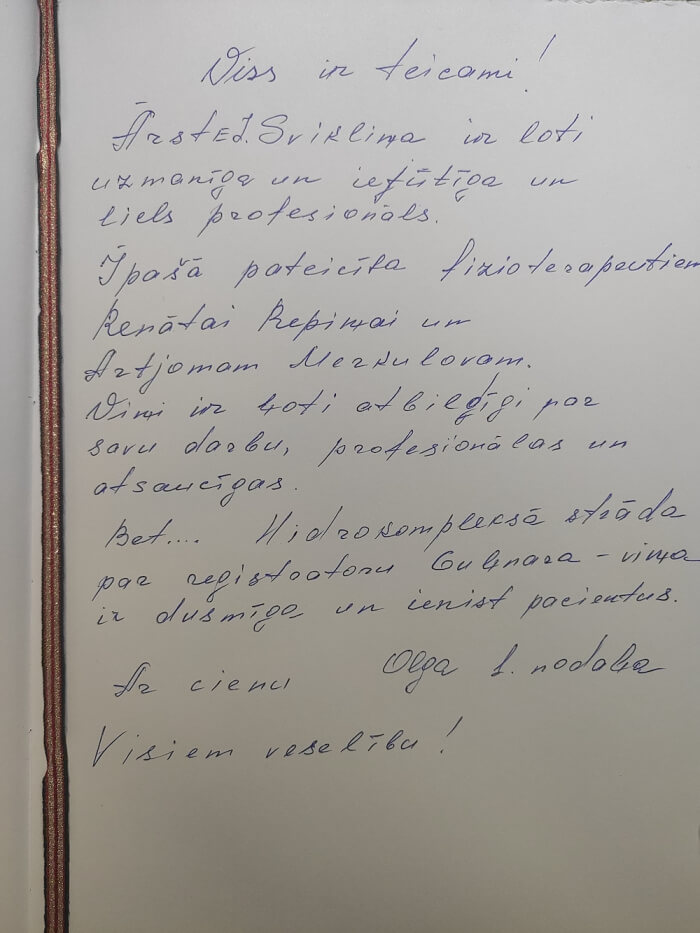 Viss ir teicami!
Ārste J. Svikliņa ir loti
uzmanīga un iejūtīga un
liels profesionāls.
Īpašā pateicība fizioterapeutiem
Renātai Repiņai un
Artjomam Merkulovam.
Viņi ir ļoti atbildīgi par
savu darbu, profesionālas un
atsaucīgas.
Bet.... Hidrokompleksā strāda
par registratoru Gulnara - viņa
ir dusmīga un ienist pacientus.
Ar cieņu Olga 1. nodaļa
Visiem veselību!